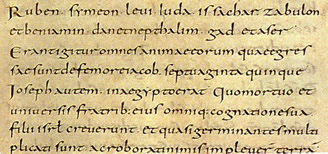 Ruben symeon levi iuda issachar zabulon
et beniamin dan et nepthalim gad et aser
Erant igitur omnes animae eorum quae egres
sae sunt de femore iacob septuaginta quinque
Ioseph autem in aegypto erat Quo mortuo et
universis fratrib; eius omniq; cognatione sua
filii isrl creverunt et quasi germinantes multi
plicati sunt ac roborati nimis impleverunt terra